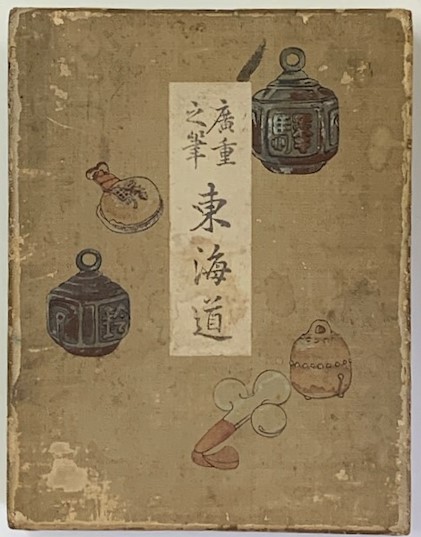 廣重
之筆
東海道
鈴